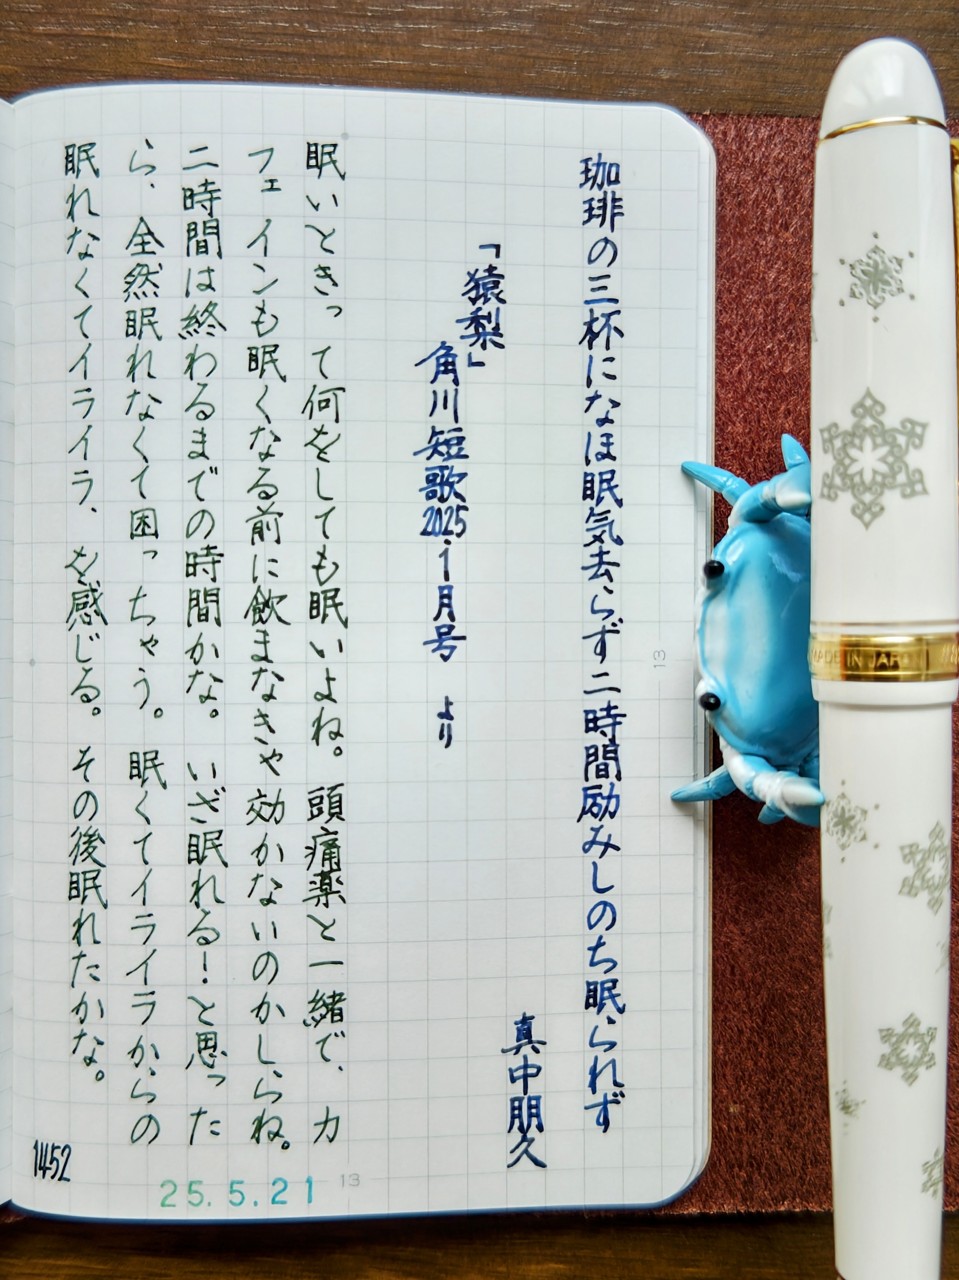 珈琲の三杯になほ眠気去らず二時間励みしのち眠られず
真中朋久
「猿梨」
角川短歌2025.1月号 より
眠いときって何をしても眠いよね。頭痛薬と一緒で、カ
フェインも眠くなる前に飲まなきゃ効かないのかしらね。
二時間は終わるまでの時間かな。いざ眠れる!と思った
ら、全然眠れなくて困っちゃう。眠くてイライラからの
眠れなくてイライラ、を感じる。その後眠れたかな。
1452
25.5.21
13
13
MADE IN JAP